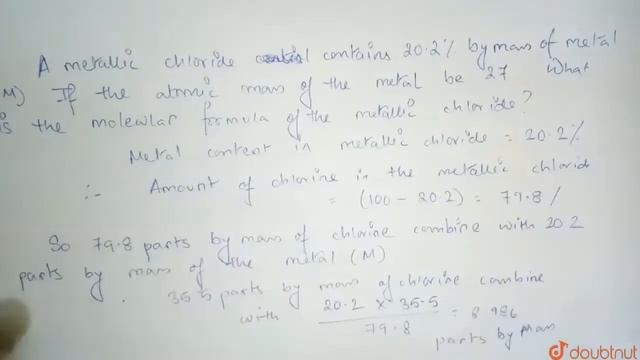 A metallic chloride contains 20.2% by mass of metal
(M) If the atomic mass of the metal be 27 What
is the molecular formula of the metallic chloride?
Metal content in metallic chloride = 20.2%
∴ Amount of chlorine in the metallic chlorid
= (100 - 20.2) = 79.8 /
So 79.8 parts by mass of chlorine combine with 20.2
parts by mass of the metal (M)
35.5 parts by mass of chlorine combine
with 20.2 × 35.5 / 79.8 = 8.986
parts by mass
doubtnut